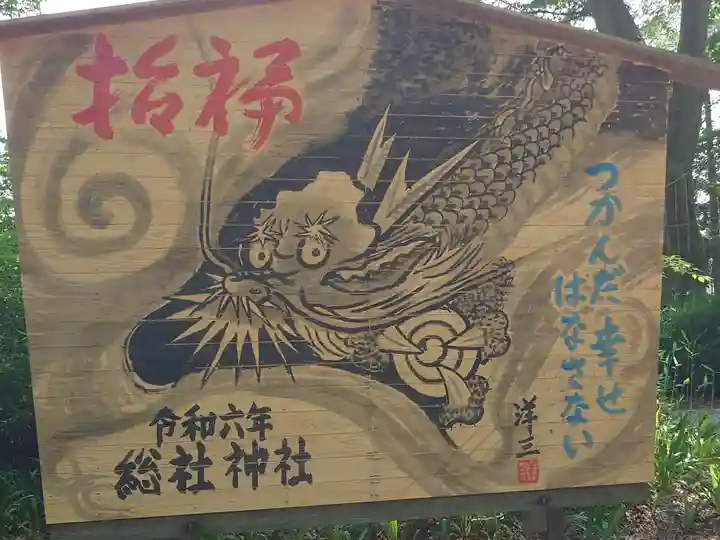 招福
つかんだ幸せ
はなさない
令和六年
総社神社
洋三